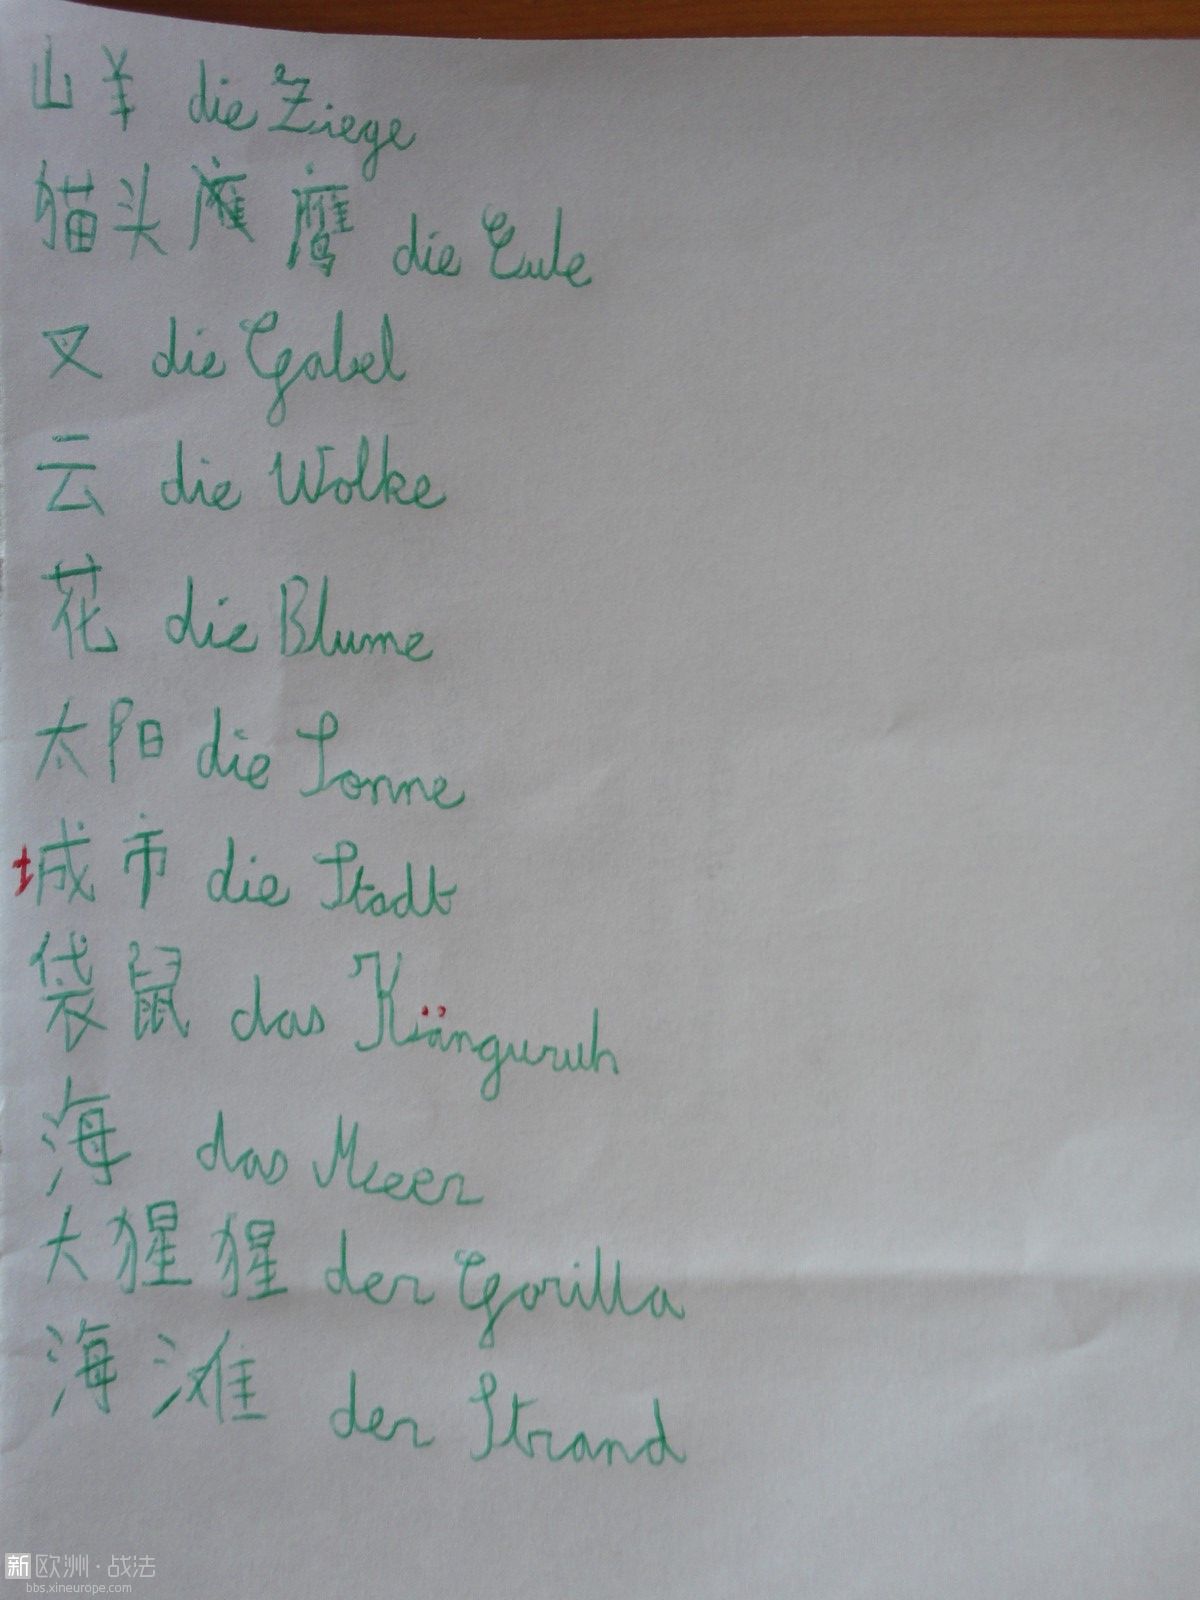 山羊 die Ziege
猫头鹰 die Eule
叉 die Gabel
云 die Wolke
花 die Blume
太阳 die Sonne
城市 die Stadt
袋鼠 das Känguruh
海 das Meer
大猩猩 der Gorilla
海滩 der Strand
新欧洲·战法
bbs.xineurope.com